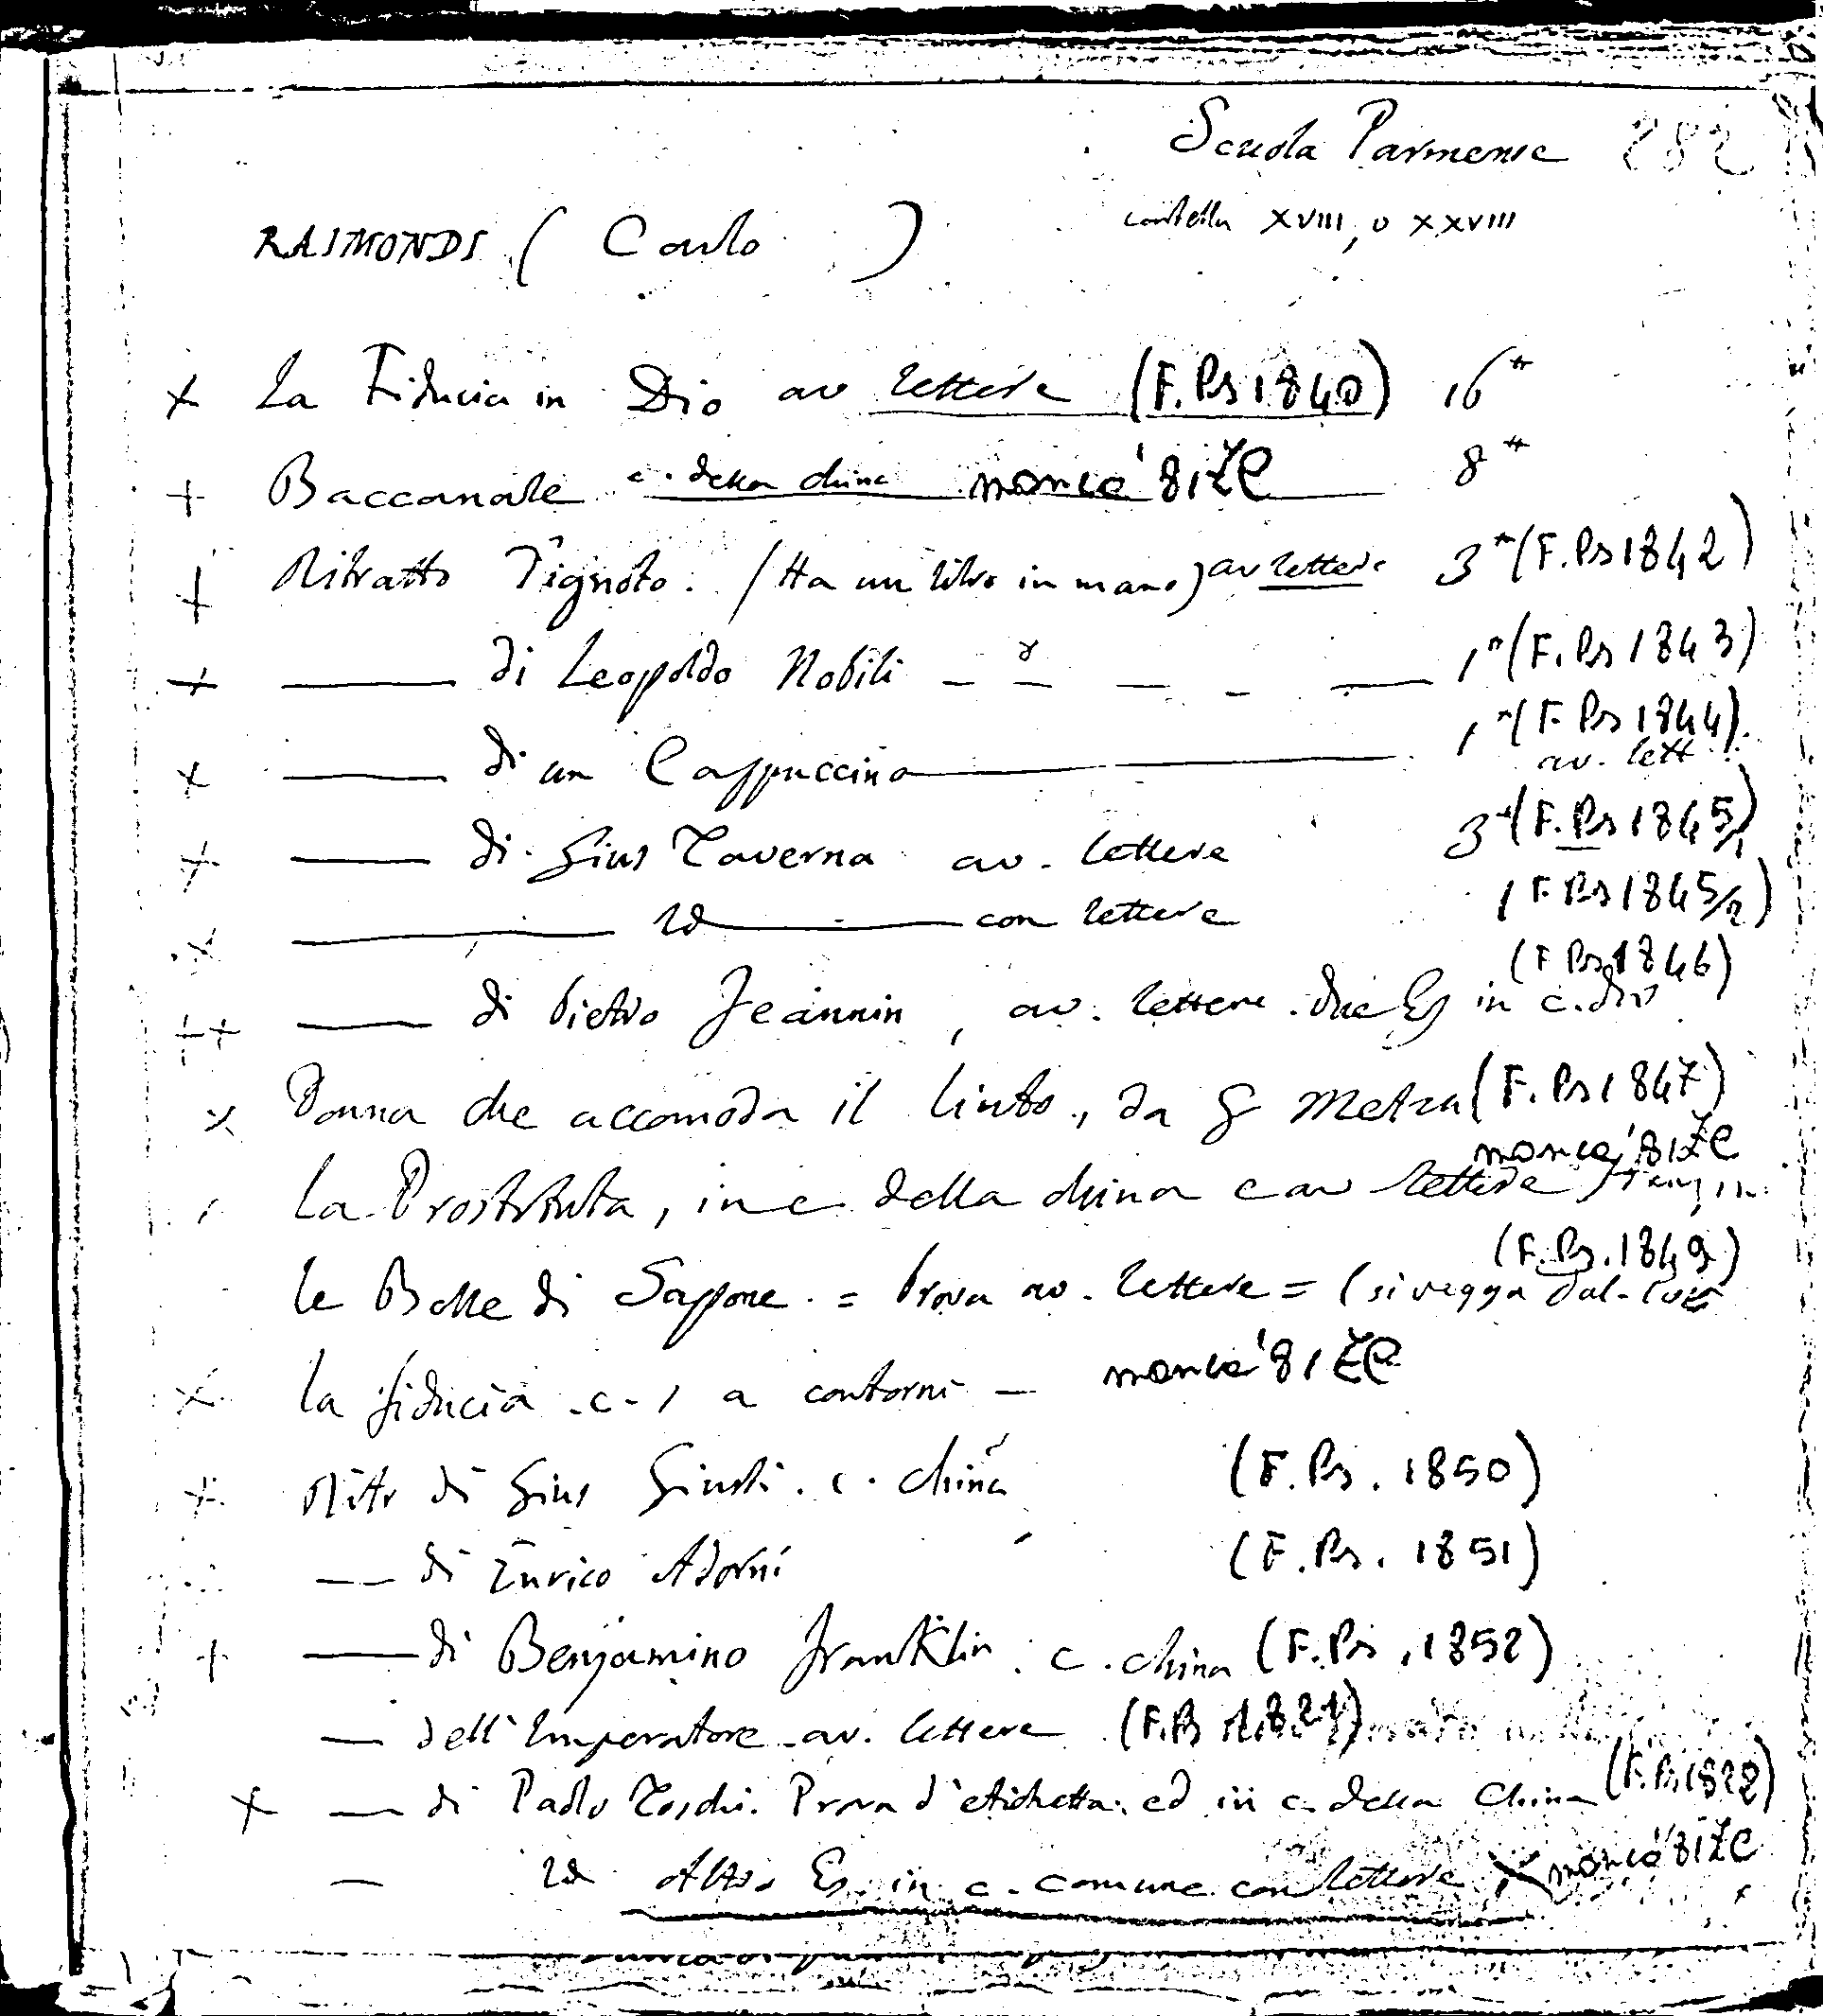 Scuola Parmense 282
cartella XVIII, o XXVIII
RAIMONDI ( Carlo )
x La Fiducia in Dio av lettere (F. Ps 1840) 16
+ Baccanale c. della china manca '81
+ Ritratto d'ignoto. (Ha un libro in mano) av lettere 3 (F. Ps 1842)
+ —— di Leopoldo Nobili — — — — 1 (F. Ps 1843)
x —— di un Cappuccino —— 1 (F. Ps 1844)
av. lett
+ —— di Gius Taverna av. lettere 3 (F. Ps 1845/1)
x —— Id —— con lettere (F Ps 1845/2)
(F Ps 1846)
++ —— di Pietro Jeannin, av. lettere. due Es in c. div
x Donna che accomoda il liuto, da G Metzu (F. Ps 1847)
manca '81
La Prostituta, in c della china e av lettere
(F. Ps. 1849)
le Bolle di Sappone. = Prova av. lettere = (si vegga dal-
x la fiducia . c. / a contorni — manca '81
+ Ritr di Gius Giusti. c. china (F. Ps. 1850)
— di Enrico Adorni (F. Ps. 1851)
+ — di Benjamino Franklin. c. china (F. Ps. 1852)
— dell'Imperatore av. lettere (F. Ps
x — di Paolo Toschi. Prova d'etichetta. ed in c. della China (F. Ps 1822)
— Id Altro Es. in c. comune con lettere x manca '81